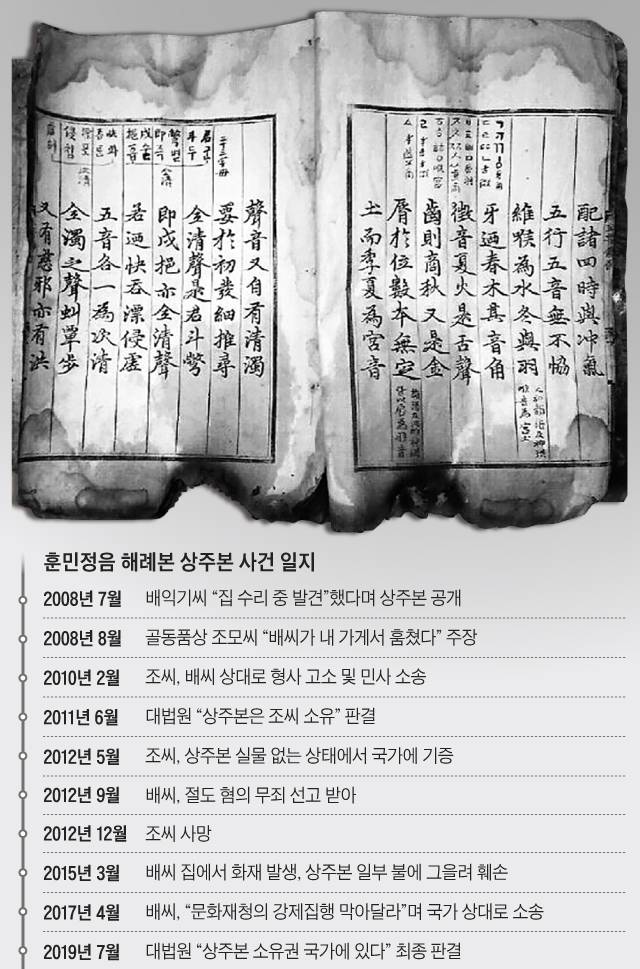 配諸四時與冲氣
五行五音無不恊
維喉為水冬與羽
牙迺春木其音角
徵音夏火是舌聲
齒則商秋又是金
脣於位數本無定
土而季夏為宮音
聲音又自有清濁
要於初發細推尋
全清聲是君斗彆
即戌挹亦全清聲
若迺快呑漂侵虛
五音各一為次清
全濁之聲虯覃步
又有慈邪亦有洪
훈민정음 해례본 상주본 사건 일지
2008년 7월 배익기씨 “집 수리 중 발견”했다며 상주본 공개
2008년 8월 골동품상 조모씨 “배씨가 내 가게서 훔쳤다” 주장
2010년 2월 조씨, 배씨 상대로 형사 고소 및 민사 소송
2011년 6월 대법원 “상주본은 조씨 소유” 판결
2012년 5월 조씨, 상주본 실물 없는 상태에서 국가에 기증
2012년 9월 배씨, 절도 혐의 무죄 선고 받아
2012년 12월 조씨 사망
2015년 3월 배씨 집에서 화재 발생, 상주본 일부 불에 그을려 훼손
2017년 4월 배씨, “문화재청의 강제집행 막아달라”며 국가 상대로 소송
2019년 7월 대법원 “상주본 소유권 국가에 있다” 최종 판결